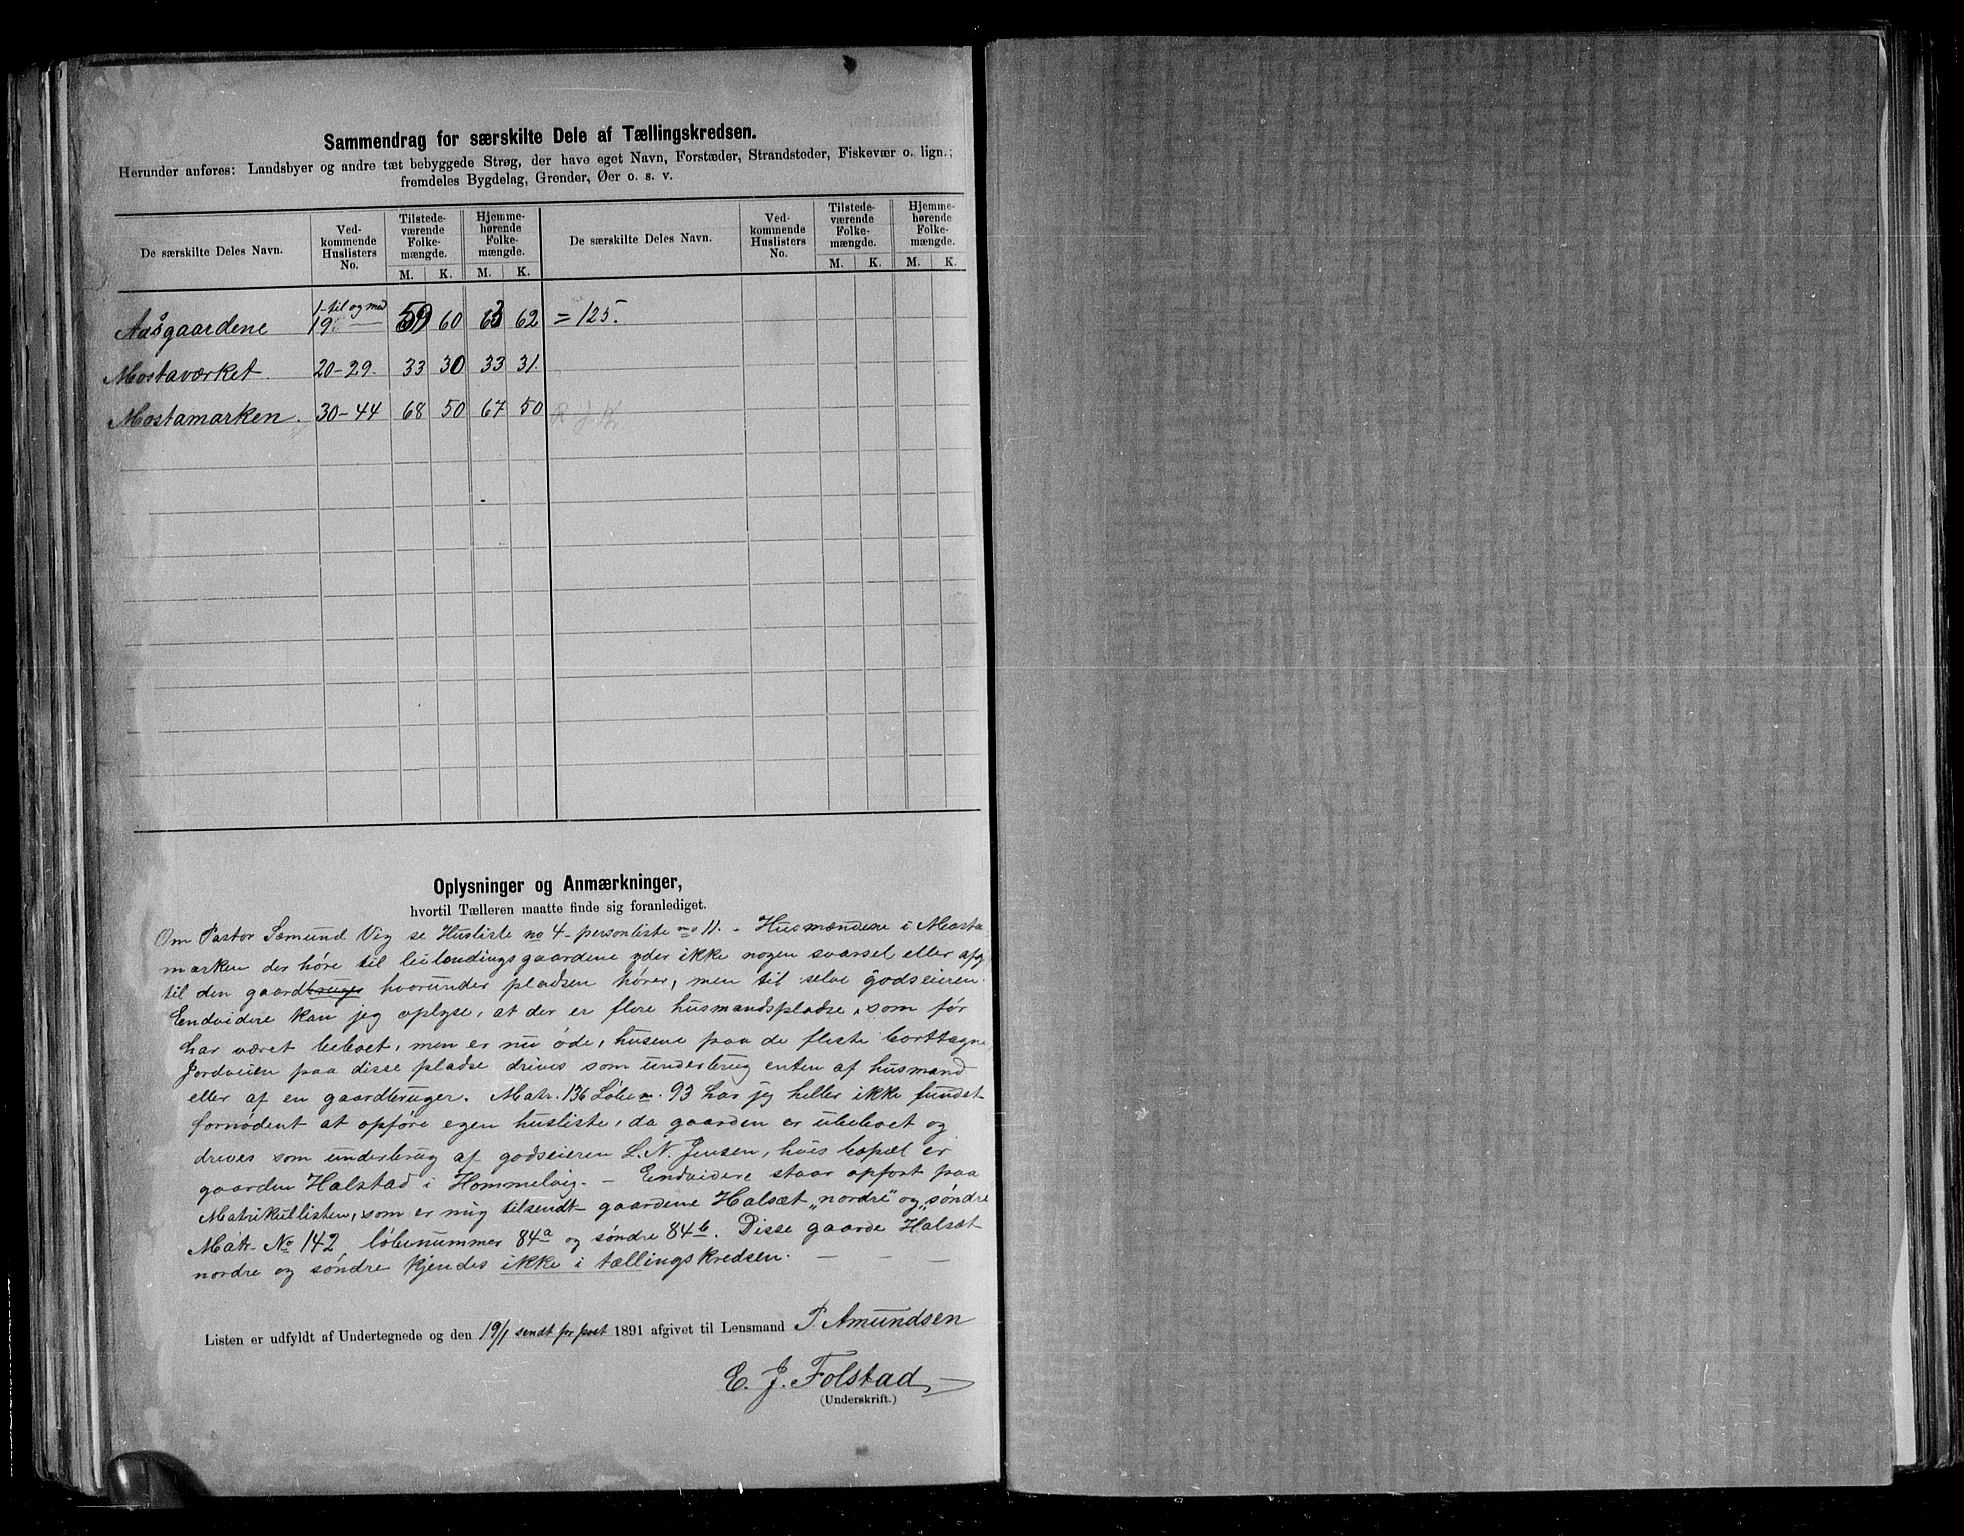 Sammendrag for særskilte Dele af Tællingskredsen.
Herunder anføres: Landsbyer og andre tæt bebyggede Strøg, der have eget Navn, Forstæder, Strandsteder, Fiskevær o. lign.;
fremdeles Bygdelag, Grender, Øer o. s. v.
De særskilte Deles Navn. Ved-kommende Huslisters No. Tilstede-værende Folke-mængde. Hjemme-hørende Folke-mængde. De særskilte Deles Navn. Ved-kommende Huslisters No. Tilstede-værende Folke-mængde. Hjemme-hørende Folke-mængde.
M. K. M. K. M. K. M. K.
Aasgaardene 1-til og med 19 59 60 63 62 = 125.
Mostaværket 20-29. 33 30 33 31.
Mostamarken. 30-44 68 50 67 50
Oplysninger og Anmærkninger,
hvortil Tælleren maatte finde sig foranlediget.
Om Pastor Sæmund Vig se Husliste no 4- personliste no 11. - Husmændene i Mosta
marken der høre til leilendingsgaardene yder ikke nogen svarsel eller afg
til den gaardbruger hvorunder pladsen hører, men til selve godseieren.
Endvidere kan jeg oplyse, at der er flere husmandspladse, som før
har været beboet, men er nu øde, husene paa de fleste borttagne
Jordveien paa disse pladse drives som underbrug enten af husmand
eller af en gaardbruger. Matr. 136 Løben. 93 har jeg heller ikke fundet
fornødent at opføre egen husliste, da gaarden er ubeboet og
drives som underbrug af godseieren L. N. Jensen, hvis bopæl er
gaarden Halstad i Hommelvig. - Endvidere staar opført paa
Matrikullisten, som er mig tilsendt gaardene Halsæt „nordre" og „søndre
Matr. No 142, løbenummer 84a og søndre 84b. Disse gaarde Halsæt
nordre og søndre kjendes ikke i tællingskredsen. — — —
Listen er udfyldt af Undertegnede og den 19/1 sendt pr post 1891 afgivet til Lensmand P. Amundsen
E. J. Folstad
(Underskrift.)